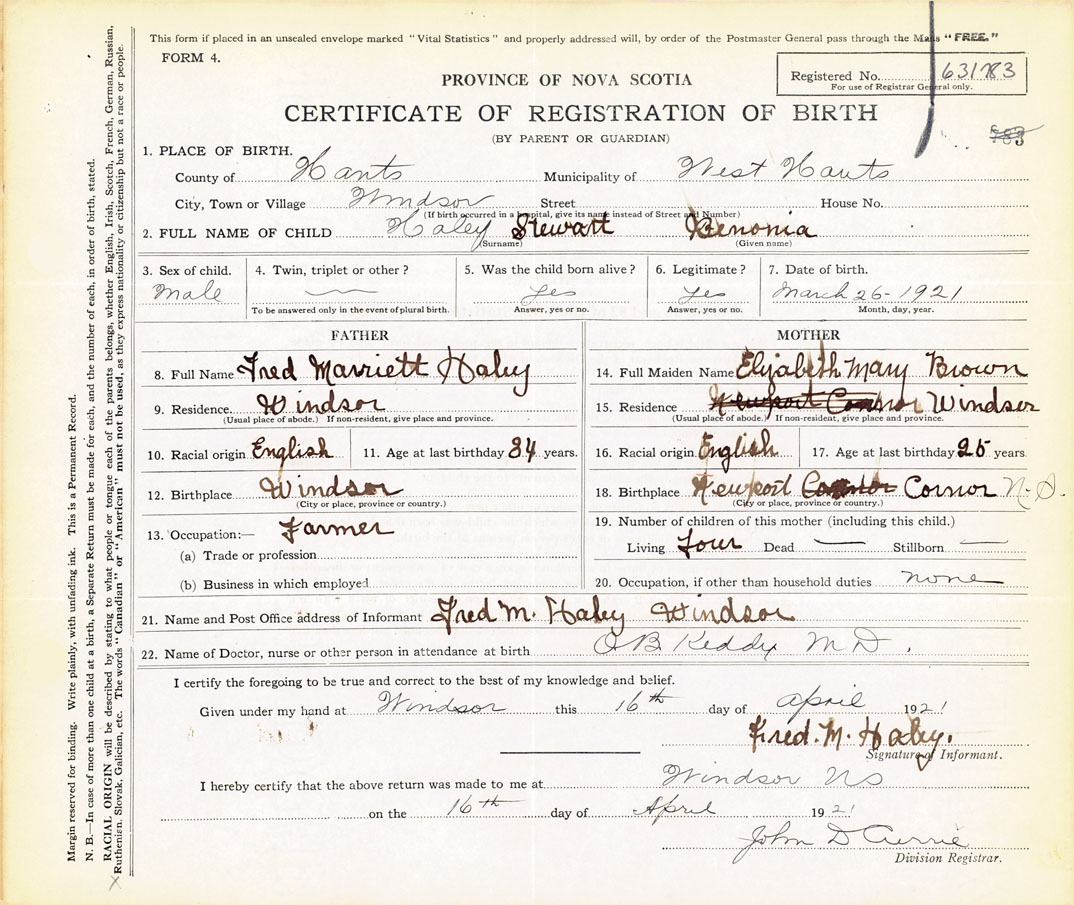 This form if placed in an unsealed envelope marked "Vital Statistics" and properly addressed will, by order of the Postmaster General pass through the Mails "FREE."
FORM 4.
Registered No. 631783
For use of Registrar General only.
PROVINCE OF NOVA SCOTIA
CERTIFICATE OF REGISTRATION OF BIRTH
(BY PARENT OR GUARDIAN)
783
1. PLACE OF BIRTH.
County of Hants Municipality of West Hants
City, Town or Village Windsor Street House No.
(If birth occurred in a hospital, give its name instead of Street and Number)
2. FULL NAME OF CHILD Haley Stewart Benonia
(Surname) (Given name)
3. Sex of child. 4. Twin, triplet or other? 5. Was the child born alive? 6. Legitimate? 7. Date of birth.
Male — yes yes March 26-1921
To be answered only in the event of plural birth. Answer, yes or no. Answer, yes or no. Month, day, year.
FATHER MOTHER
8. Full Name Fred Marriett Haley 14. Full Maiden Name Elizabeth Mary Brown
9. Residence Windsor 15. Residence Newport Connor Windsor
(Usual place of abode.) If non-resident, give place and province. (Usual place of abode.) If non-resident, give place and province.
10. Racial origin English 11. Age at last birthday 34 years. 16. Racial origin English 17. Age at last birthday 25 years
12. Birthplace Windsor 18. Birthplace Newport Connor Cornor N.S.
(City or place, province or country.) (City or place, province or country.)
13. Occupation:— Farmer 19. Number of children of this mother (including this child.)
(a) Trade or profession Living Four Dead — Stillborn —
(b) Business in which employed 20. Occupation, if other than household duties none
21. Name and Post Office address of Informant Fred M. Haley Windsor
22. Name of Doctor, nurse or other person in attendance at birth O B Keddy M D.
I certify the foregoing to be true and correct to the best of my knowledge and belief.
Given under my hand at Windsor this 16th day of April 1921
Fred. M. Haley.
Signature of Informant.
I hereby certify that the above return was made to me at Windsor NS
on the 16th day of April 1921
John D Currie
Division Registrar.
Margin reserved for binding. Write plainly, with unfading ink. This is a Permanent Record.
N. B.—In case of more than one child at a birth, a Separate Return must be made for each, and the number of each, in order of birth, stated.
RACIAL ORIGIN will be described by stating to what people or tongue each of the parents belongs, whether English, Irish, Scotch, French, German, Russian,
Ruthenian, Slovak, Galician, etc. The words "Canadian" or "American" must not be used, as they express nationality or citizenship but not a race or people.